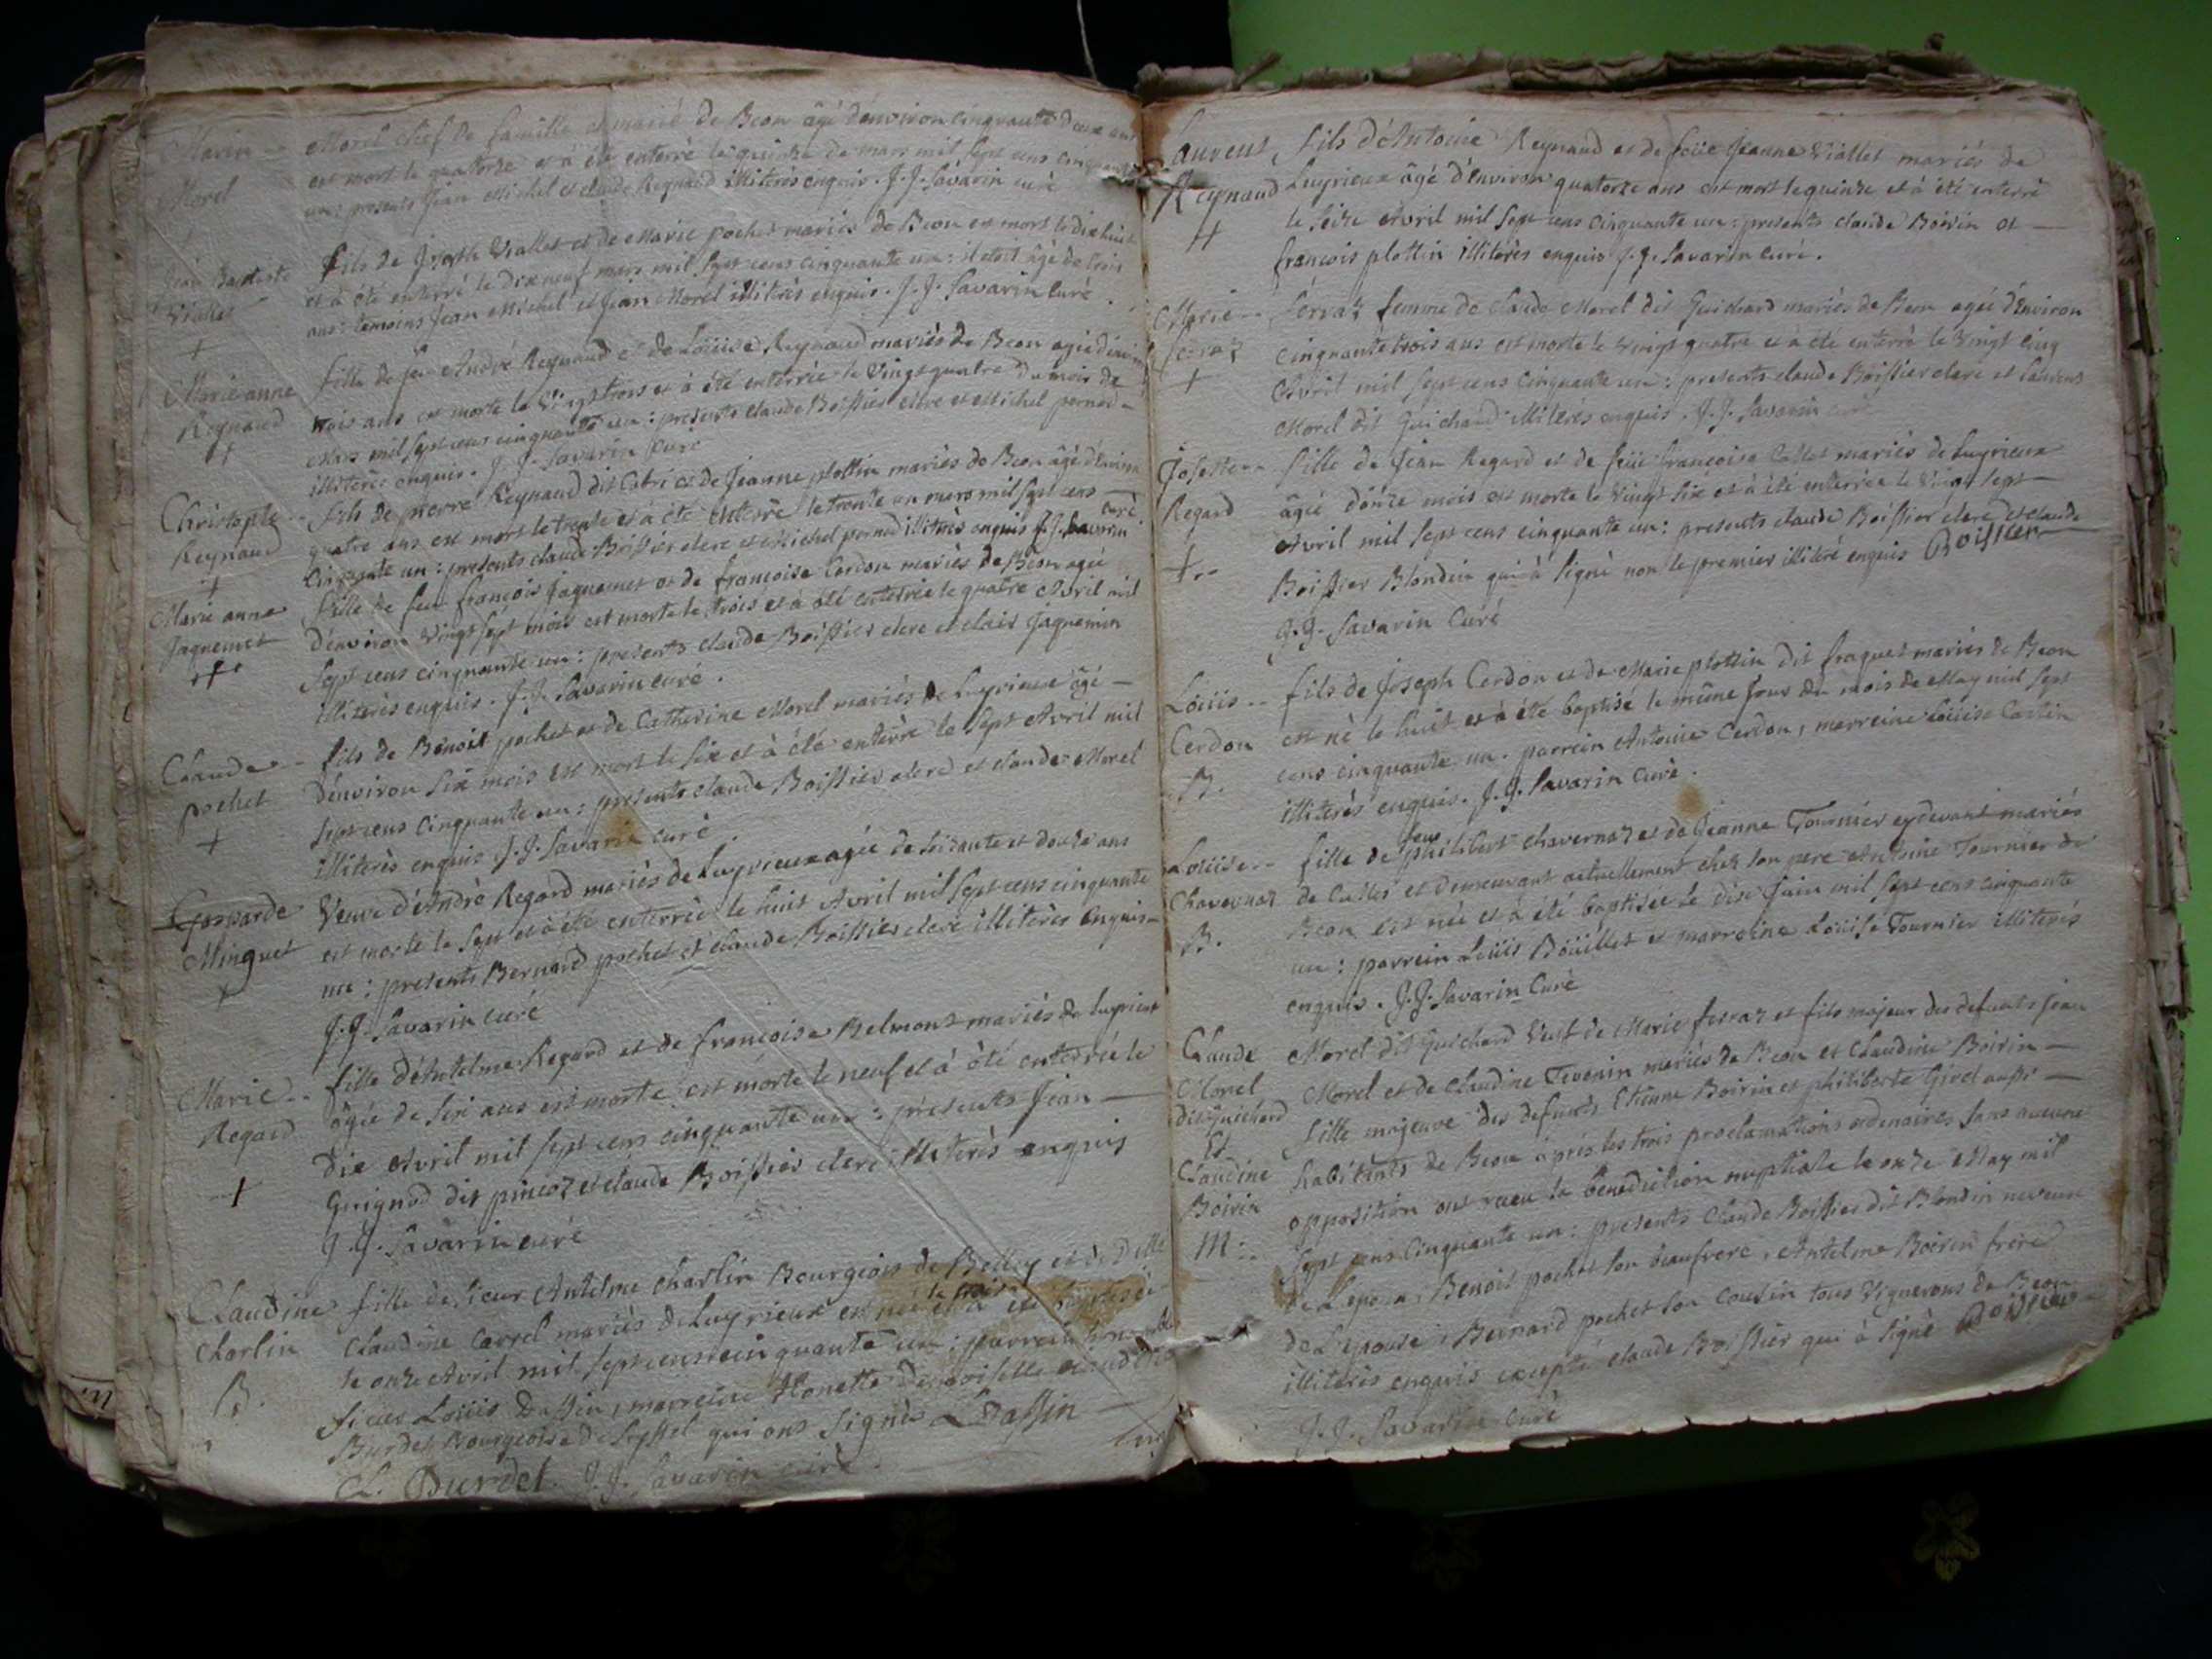 Marin -- Morel chef de famille et marié de Beon âgé d'environ cinquante deux ans
Morel est mort le quatorze et à été enterré le quinze de mars mil sept cens cinquante
un: presents Jean Michel et claude Reynaud illiterès enquis. J.J. Savarin curé
Jean Baptiste fils de Joseph Viallet et de Marie pochet mariés de Beon est mort le dix huit
Viallet et à été enterré le dix neuf mars mil sept cens cinquante un: il etoit âgé de trois
+ ans: temoins Jean Michel et Jean Morel illiterès enquis. J.J. Savarin Curé.
Marie anne fille de feu André Reynaud et de Loüise Reynaud mariés de Beon agée d'environ
Reynaud trois ans est morte le vingt trois et à été enterrée le vingt quatre du mois de
+ Mars mil sept cens cinquante un: presents claude Boissier clerc et Michel pernod -
illiterès enquis. J.J. Savarin Curé
Christophe -- fils de pierre Reynaud dit Cabri et de Jeanne plottin mariés de Beon âgé d'Environ
Reynaud quatre ans est mort le trente et à été enterré le trente un mars mil sept cens
+ Cinquante un: presents claude Boissier clerc et Michel pernod illiterès enquis J.J. Savarin curé
Marie anne fille de feu françois Jaquemet et de francoise Cerdon mariés de Beon agée
Jaquemet d'environ vingt sept mois est morte le trois et à été enterrée le quatre Avril mil
+ sept cens cinquante un: presents claude Boissier clerc et clais Jaquemin
illiterès enquis. J.J. Savarin curé.
Claude -- fils de Benoit pochet et de Catherine Morel mariés de Luyrieux âgé -
pochet d'environ six mois est mort le six et à été enterré le sept Avril mil
+ sept cens Cinquante un: presents claude Boissier clerc et claude Morel
illiterès enquis J.J. Savarin curé.
Gasparde Veuve d'André Regard mariés de Luyrieux agée de soixante et douze ans
Minguet est morte le sept et à été enterrée le huit Avril mil sept cens cinquante
+ un: presents Bernard pochet et claude Boissier clerc illiterès Enquis -
J.J. Savarin curé
Marie -- fille d'Antelme Regard et de francoise Belmont mariés de Luyrieux
Regard âgée de six ans est morte est morte le neuf et à été enterrée le
dix Avril mil sept cens cinquante un: presents Jean -
+ Guignod dit pincoz et claude Boissier clerc illiterès enquis
J.J. Savarin curé
Claudine fille de sieur Antelme Charlin Bourgeois de Belley et de Dlle
Charlin Claudine Carrel mariés de Luyrieux est née le trois et à été baptisée
B. le onze Avril mil sept cens cinquante un: parrein
sieur Loüis Dassin, marreine Honette Demoiselle claudine
Burdet Bourgeoise de Seyssel qui ont signés LDassin
CL. Burdet. J.J. Savarin curé.
Laurent fils d'Antoine Reynaud et de feüe Jeanne Viallet mariés de
Reynaud Luyrieux âgé d'Environ quatorze ans est mort le quinze et à été enterré
+ le seize Avril mil sept cens cinquante un: presents claude Boivin et -
francois plottin illiterès enquis J.J. Savarin Curé.
Marie -- ferraz femme de claude Morel dit Guichard mariés de Beon agée d'Environ
ferraz cinquante trois ans est morte le vingt quatre et à été enterré le vingt cinq
+ Avril mil sept cens Cinquante un: presents claude Boissier clerc et Laurens
Morel dit Guichard illiterés enquis. J.J. Savarin curé
Josette -- fille de Jean Regard et de feüe francoise Callet mariés de Luyrieux
Regard âgée d'onze mois est morte le vingt six et à été enterrée le vingt sept -
+-- Avril mil sept cens cinquante un: presents claude Boissier clerc et claude
Boissier Blondin qui à signé non le premier illitéré enquis Boissier
J.J. Savarin Curé
Loüis -- fils de Joseph Cerdon et de Marie plottin dit fraquet mariés de Beon
Cerdon est né le huit et à été baptisé le même jour du mois de May mil sept
B. cens cinquante un. parrein Antoine Cerdon, marreine Loüise Carlin
illiterés enquis. J.J. Savarin curé.
Loüise -- fille de feu philibert chavernaz et de Jeanne Tournier cydevant mariés
Chavernaz de Culles et demeurant actuellement chez son pere Antoine Tournier de
B. Beon est née et à été baptisée le dix Juin mil sept cens cinquante
un: parrein Loüis Boüillet et marreine Loüise Tournier illiterés
enquis. J.J. Savarin Curé
Claude Morel dit Guichard Veuf de Marie ferraz et fils majeur des defunts Jean
Morel Morel et de claudine Tevenin mariés de Beon et Claudine Boivin -
dit Guichard fille majeure des defunts Etienne Boivin et philiberte Girel aussi -
Et habitants de Beon après les trois proclamations ordenaires sans aucune
Claudine opposition ont receu la benediction nuptiale le onze May mil
Boivin sept cens Cinquante un: presents Claude Boissier dit Blondin neveux
M:. de L'epoux, Benoit pochet son beaufrere, Antelme Boivin frere
de L'epouse, Bernard pochet son Cousin tous Vignerons de Beon
illiterés enquis excepté claude Boissier qui à signé Boissier
J.J. Savarin curé